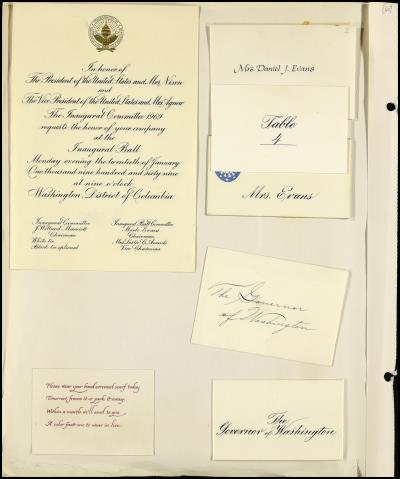 In honor of
The President of the United States and Mrs. Nixon
and
The Vice President of the United States and Mrs. Agnew
The Inaugural Committee 1969
requests the honor of your company
at the
Inaugural Ball
Monday evening the twentieth of January
One thousand nine hundred and sixty nine
at nine o'clock
Washington, District of Columbia
Inaugural Committee
J. Willard Marriott
Chairman
White tie
Black tie optional
Inaugural Ball Committee
Mark Evans
Chairman
Mrs. Leslie C. Arends
Vice Chairman
Mrs. Daniel J. Evans
Table
4
Mrs. Evans
The Governor
of Washington
Please wear your hand screened scarf today
Tomorrow, frame it or pack it away.
Within a month we'll send to you
A color fast one to wear in lieu.
The
Governor of Washington